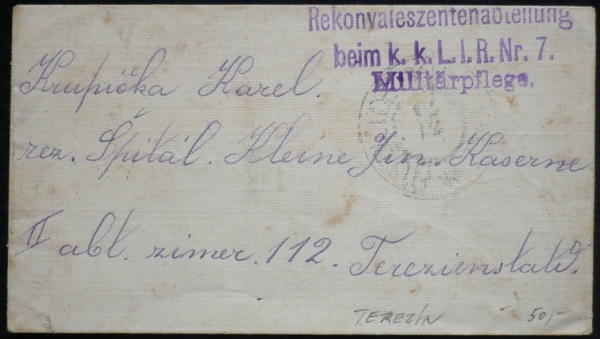 Rekonvaleszentenabteilung
beim k. k. L. I. R. Nr. 7.
Militärpflege.
Krupička Karel.
rez. Špitál. Kleine Jnn. Kaserne
II abt. zimer. 112. Terezienstadt.
TEREZÍN 50,-